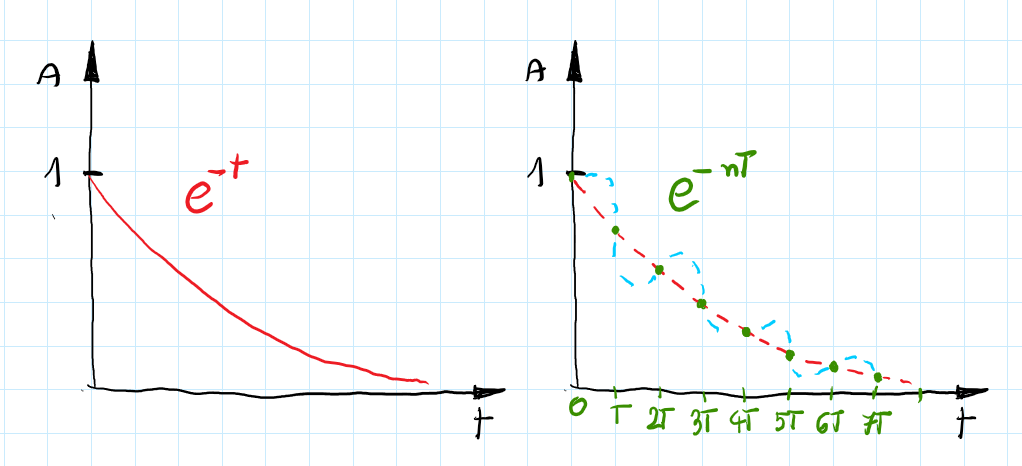 A
1
e^-t
t
A
1
e^-nT
0 T 2T 3T 4T 5T 6T 7T
t